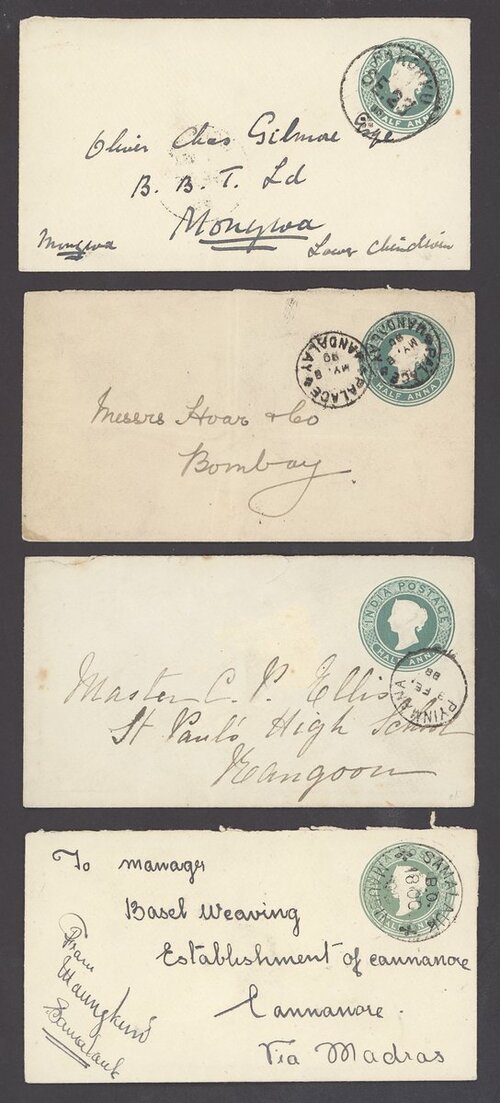 INDIA POSTAGE
HALF ANNA
E.27
Oliver Chas Gilmore Esqre
B. B. T. Ld
Mongwa
Mongwa
Lower Chindwin
PALACE MANDALAY
MY. 8
90
PALACE MANDALAY
MY. 8
90
HALF ANNA
Messrs Hoar & Co
Bombay
INDIA POSTAGE
HALF ANNA
PYINMANA
FE.
88
Master C. P. Ellis
St Paul's High School
Rangoon
SAMALAUK
B.O.
18 OC
To manager
Basel Weaving
Establishment of cannanore
Cannanore.
Via Madras
From
Samalauk